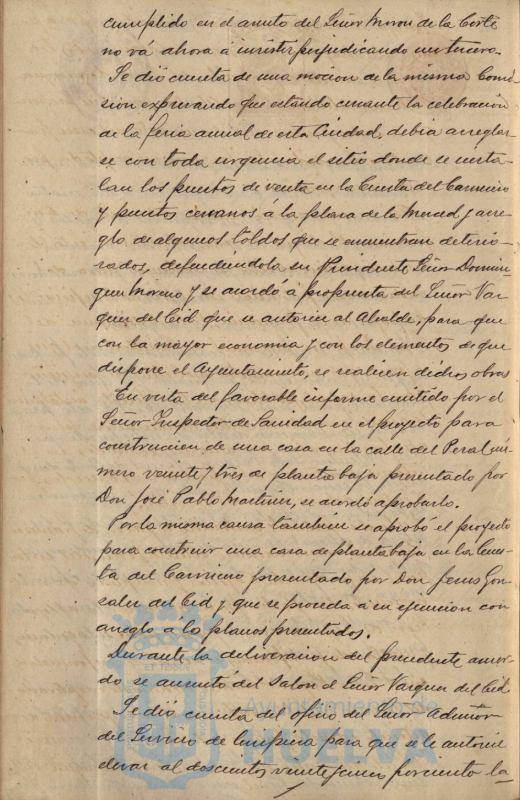 cumplido en el asunto del Señor Moron de la Corte
no vá ahora á insistir perjudicando un tercero.
Se dió cuenta de una mocion de la misma Comi
sion expresando que estando cercante la celebración
de la feria anual de esta Ciudad, debia arreglar-
se con toda urgencia el sitio donde se insta-
lan los puestos de venta en la Cuesta del Carnicero
y puntos cercanos á la plaza de la Merced y arre-
glo de algunos toldos que se encuentran deterio-
rados, defendiéndola su Presidente Señor Domin-
guez Moreno y se acordó á propuesta del Señor Vaz-
quez del Cid que se autorice al Alcalde, para que
con la mayor economia y con los elementos de que
dispone el Ayuntamiento, se realicen dichas obras
En vista del favorable informe emitido por el
Señor Inspector de Sanidad en el proyecto para
construccion de una casa en la calle del Peral nú-
mero veinte y tres de planta baja presentado por
Don José Pablo Martinez, se acordó aprobarlo.
Por la misma causa tambien se aprobó el proyecto
para construir una casa de planta baja en la Cues-
ta del Carnicero presentado por Don Jesus Gon-
zalez del Cid y que se proceda á su ejecucion con
arreglo á los planos presentados.
Durante la deliveracion del precedente acuer-
do se ausentó del Salon el Señor Vazquez del Cid
Se dió cuenta del oficio del Señor Admór
del Servicio de limpieza para que se le autorice
elevar al doscientos veinte y cinco por ciento la
Ayuntamiento de
HUELVA